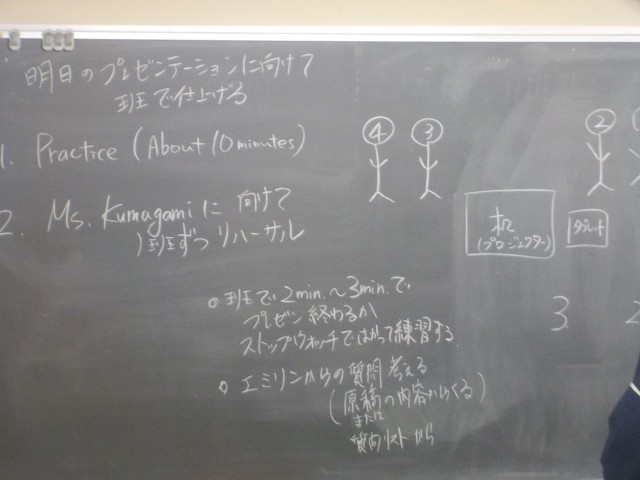 明日のプレゼンテーションに向けて
班で仕上げる
1. Practice (About 10 minutes)
2. Ms. Kumagami に 向けて
1班ずつ リハーサル
④ ③ ②
机
(プロジェクター)
タブレット
3
2
○ 班で 2min.〜3min.で
プレゼン 終わるか
ストップウォッチではかって練習する
○ エミリンからの質問 考える
(原稿の内容からくる)
または
質問リストから